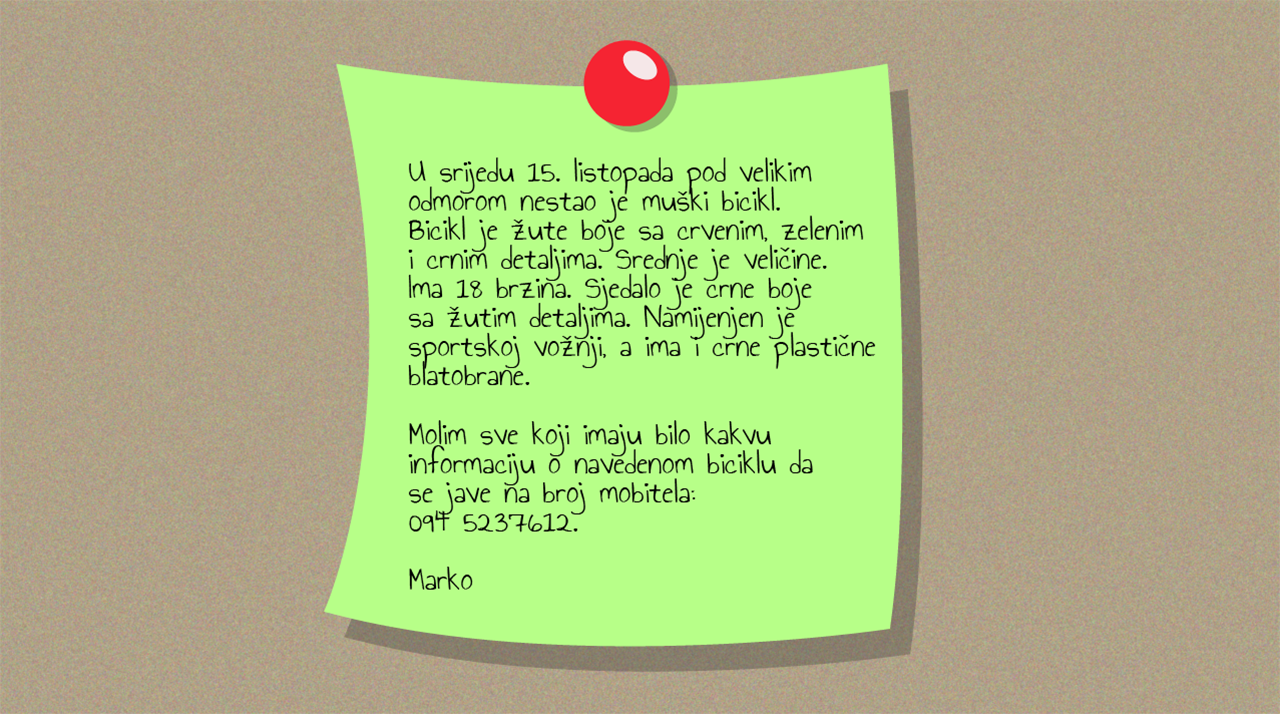 U srijedu 15. listopada pod velikim
odmorom nestao je muški bicikl.
Bicikl je žute boje sa crvenim, zelenim
i crnim detaljima. Srednje je veličine.
Ima 18 brzina. Sjedalo je crne boje
sa žutim detaljima. Namijenjen je
sportskoj vožnji, a ima i crne plastične
blatobrane.
Molim sve koji imaju bilo kakvu
informaciju o navedenom biciklu da
se jave na broj mobitela:
094 5237612.
Marko